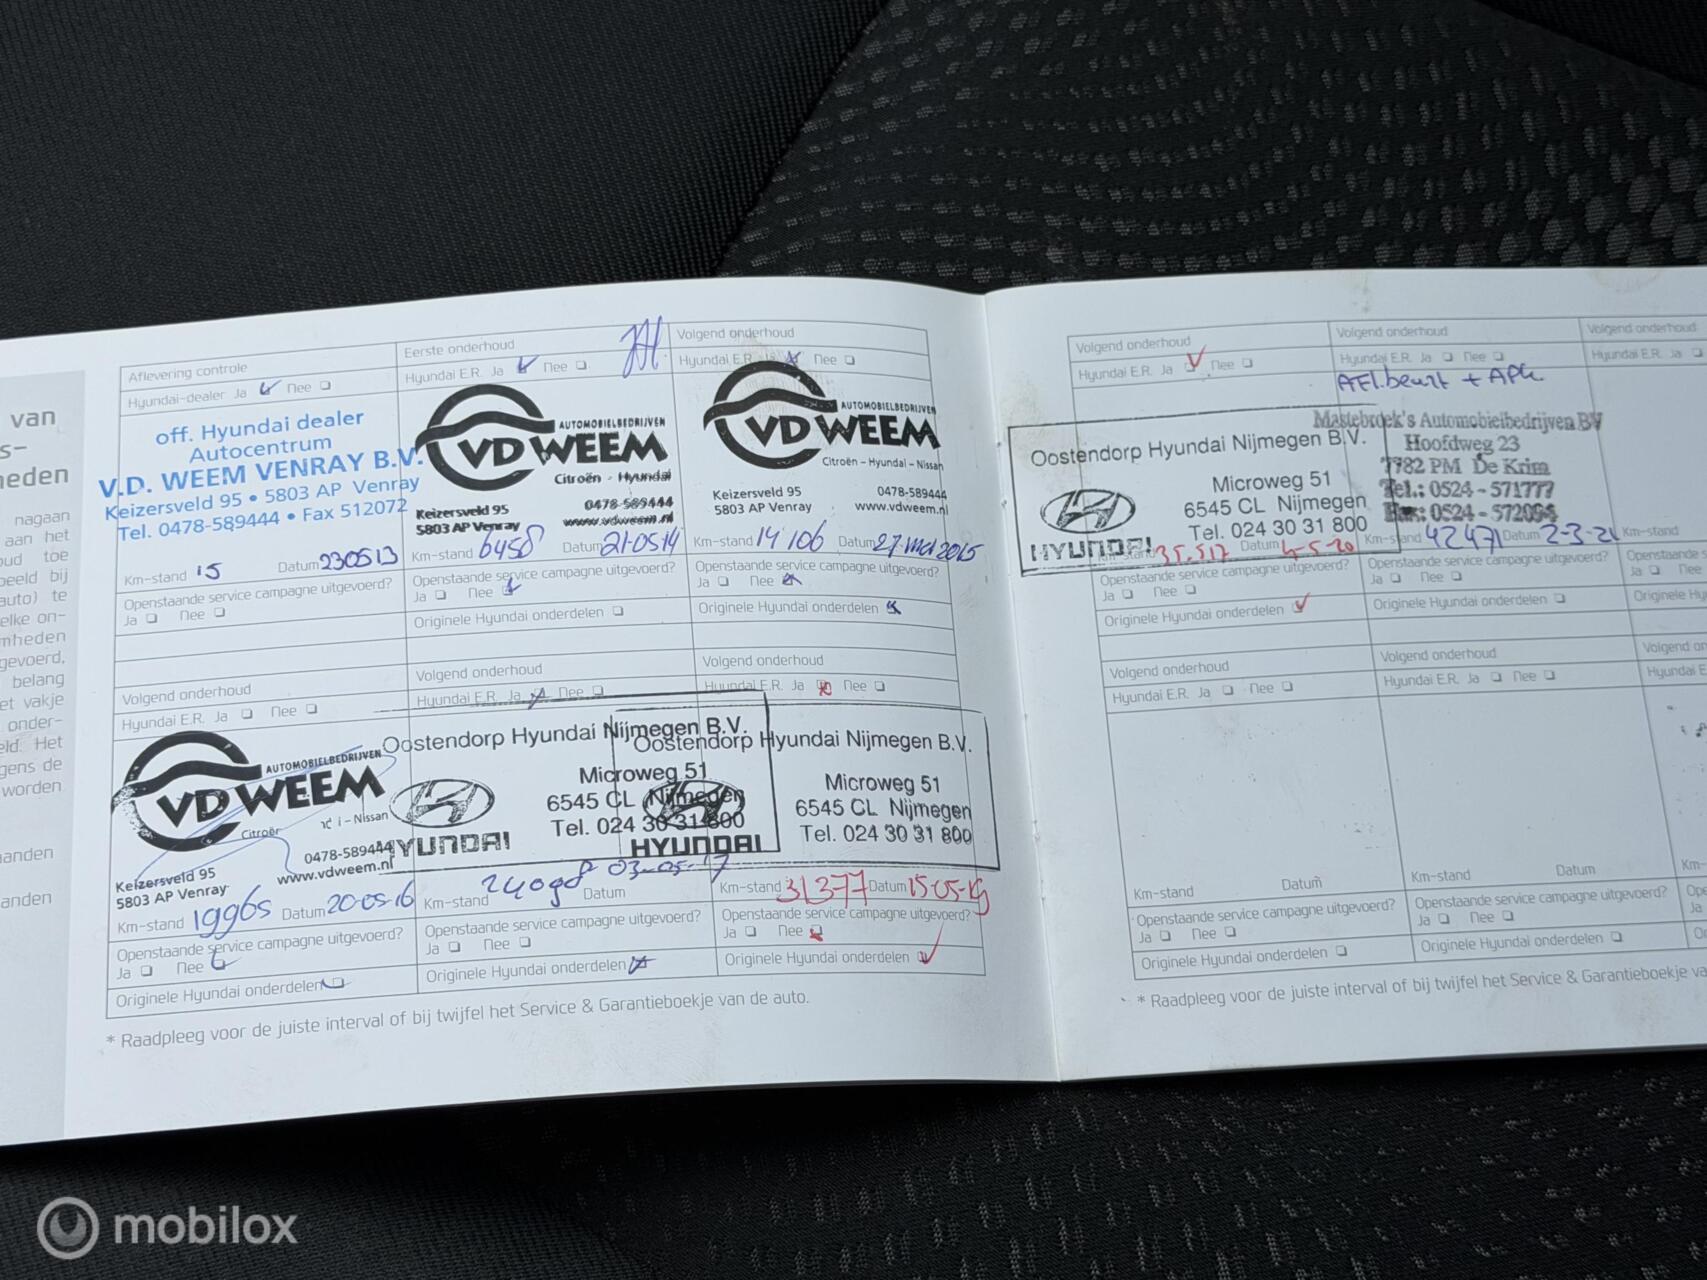 van
s-
heden
nagaan
aan het
oud toe
beeld bij
auto) te
elke on-
mheden
gevoerd,
belang
et vakje
onder-
eld. Het
gens de
worden
aanden
aanden
Aflevering controle
Hyundai-dealer Ja Nee
off. Hyundai dealer
Autocentrum
V.D. WEEM VENRAY B.V.
Keizersveld 95 • 5803 AP Venray
Tel. 0478-589444 • Fax 512072
Km-stand 15 Datum 230513
Openstaande service campagne uitgevoerd?
Ja Nee
Eerste onderhoud
Hyundai E.R. Ja Nee
AUTOMOBIELBEDRIJVEN
VD WEEM
Citroën - Hyundai
Keizersveld 95 0478-589444
5803 AP Venray www.vdweem.nl
Km-stand 6458 Datum 21-05-14
Openstaande service campagne uitgevoerd?
Ja Nee
Originele Hyundai onderdelen
Volgend onderhoud
Hyundai E.R. Ja Nee
AUTOMOBIELBEDRIJVEN
VD WEEM
Citroën - Hyundai - Nissan
Keizersveld 95 0478-589444
5803 AP Venray www.vdweem.nl
Km-stand 14106 Datum 27 mei 2015
Openstaande service campagne uitgevoerd?
Ja Nee
Originele Hyundai onderdelen
Volgend onderhoud
Hyundai E.R. Ja Nee
AUTOMOBIELBEDRIJVEN
VD WEEM
Citroën i - Nissan
Keizersveld 95 0478-589444
5803 AP Venray www.vdweem.nl
Km-stand 19965 Datum 20-05-16
Openstaande service campagne uitgevoerd?
Ja Nee
Originele Hyundai onderdelen
Volgend onderhoud
Hyundai E.R. Ja Nee
Oostendorp Hyundai Nijmegen B.V.
Microweg 51
6545 CL Nijmegen
Tel. 024 30 31 800
HYUNDAI
Km-stand Datum 03-05-17
Openstaande service campagne uitgevoerd?
Ja Nee
Originele Hyundai onderdelen
Volgend onderhoud
Hyundai E.R. Ja Nee
Oostendorp Hyundai Nijmegen B.V.
Microweg 51
6545 CL Nijmegen
Tel. 024 30 31 800
HYUNDAI
Km-stand 31377 Datum 15-05-19
Openstaande service campagne uitgevoerd?
Ja Nee
Originele Hyundai onderdelen
* Raadpleeg voor de juiste interval of bij twijfel het Service & Garantieboekje van de auto.
Volgend onderhoud
Hyundai E.R. Ja Nee
Oostendorp Hyundai Nijmegen B.V.
Microweg 51
6545 CL Nijmegen
Tel. 024 30 31 800
HYUNDAI
35.517 Datum 4-5-20
Openstaande service campagne uitgevoerd?
Ja Nee
Originele Hyundai onderdelen
Volgend onderhoud
Hyundai E.R. Ja Nee
Afl.beurt + APK
Mastebroek's Automobielbedrijven BV
Hoofdweg 23
7782 PM De Krim
Tel.: 0524 - 571777
Fax: 0524 - 572094
Km-stand 42471 Datum 2-3-21
Openstaande service campagne uitgevoerd?
Ja Nee
Originele Hyundai onderdelen
Volgend onderhoud
Hyundai E.R. Ja
Km-stand
Openstaande s
Ja
Originele Hy
Volgend onderhoud
Hyundai E.R. Ja Nee
Km-stand Datum
Openstaande service campagne uitgevoerd?
Ja Nee
Originele Hyundai onderdelen
Volgend onderhoud
Hyundai E.R. Ja Nee
Km-stand Datum
Openstaande service campagne uitgevoerd?
Ja Nee
Originele Hyundai onderdelen
Volgend on
Hyundai E
Km-s
Open
Ja
Or
* Raadpleeg voor de juiste interval of bij twijfel het Service & Garantieboekje va
mobilox